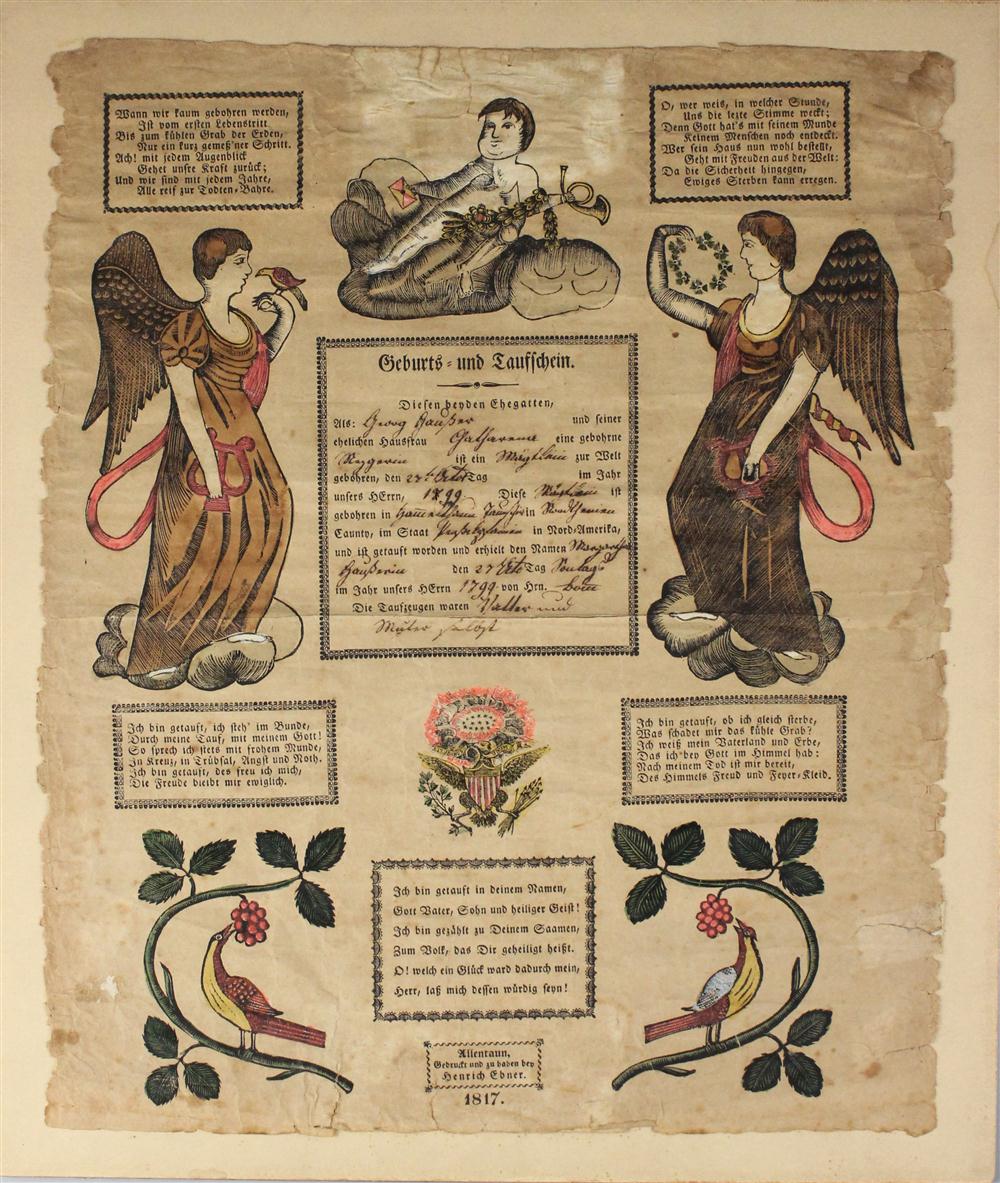 Wann wir kaum gebohren werden,
Ist vom ersten Lebenstritt
Bis zum kühlen Grab der Erden,
Nur ein kurz gemeß'ner Schritt.
Ach! mit jedem Augenblick
Gehet unsre Kraft zurück;
Und wir sind mit jedem Jahre,
Alle reif zur Todten-Bahre.
O, wer weis, in welcher Stunde,
Uns die lezte Stimme weckt;
Denn Gott hat's mit seinem Munde
Keinem Menschen noch entdeckt.
Wer sein Haus nun wohl bestellt,
Geht mit Freuden aus der Welt:
Da die Sicherheit hingegen,
Ewiges Sterben kann erregen.
Geburts- und Taufschein.
Diesen beyden Ehegatten,
Als: Georg Haußer und seiner
ehelichen Hausfrau Catharina eine gebohrne
ist ein zur Welt
gebohren, den 23ten Octor Tag im Jahr
unsers HErrn, 1799 Diese ist
gebohren in in
Caunty, im Staat in Nord-Amerika,
und ist getauft worden und erhielt den Namen
Haußerin den 27 Tag
im Jahr unsers HErrn 1799 von Hrn.
Die Taufzeugen waren Vatter und
Muter selbst
Ich bin getauft, ich steh' im Bunde,
Durch meine Tauf, mit meinem Gott!
So sprech ich stets mit frohem Munde,
In Kreuz, in Trübsal, Angst und Noth.
Ich bin getauft, des freu ich mich,
Die Freude bleibt mir ewiglich.
Ich bin getauft, ob ich gleich sterbe,
Was schadet mir das kühle Grab?
Ich weiß mein Vaterland und Erbe,
Das ich bey Gott im Himmel hab:
Nach meinem Tod ist mir bereit,
Des Himmels Freud und Feyer-Kleid.
Ich bin getauft in deinem Namen,
Gott Vater, Sohn und heiliger Geist!
Ich bin gezählt zu Deinem Saamen,
Zum Volk, das Dir geheiligt heißt.
O! welch ein Glück ward dadurch mein,
Herr, laß mich dessen würdig seyn!
Allentaun,
Gedruckt und zu haben bey
Henrich Ebner.
1817.